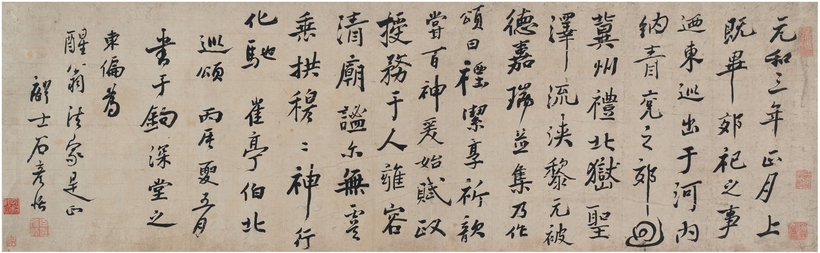 元和三年正月上
既畢郊祀之事
迺東巡出于河內
納青兗之郊回
冀州禮北嶽聖
澤流浹黎元被
德嘉瑞並集乃作
頌曰禋潔享祈歆
嘗百神爰始賦政
授務于人雍容
清廟謐爾無虞
垂拱穆〻神行
化馳 崔亭伯北
巡頌 丙辰夏五月
書于鉤深堂之
東偏為
醒翁法家是正
麟士石彥恬